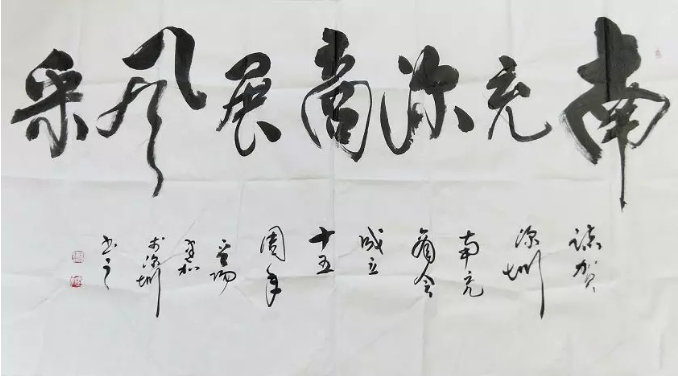 南充深商展风采
誌贺
深圳
南充
商会
成立
十五
周年
於深圳
书之